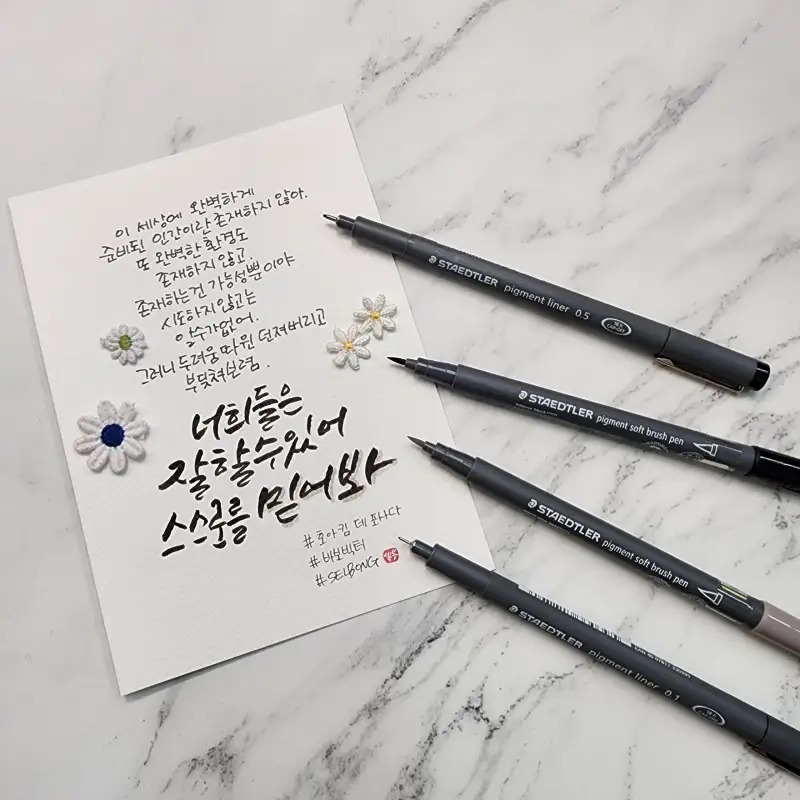 이 세상에 완벽하게
준비된 인간이란 존재하지 않아.
또 완벽한 환경도
존재하지 않고
존재하는건 가능성뿐이야
시도하지 않고는
알수가없어.
그러니 두려움 따윈 던져버리고
부딪쳐보렴.
너희들은
잘할수있어
스스로를 믿어봐
#호아킴 데 포사다
#바보빅터
#SEIBONG
STAEDTLER pigment liner 0.5
CAP-OFF
STAEDTLER pigment soft brush pen
STAEDTLER pigment soft brush pen
STAEDTLER pigment liner 0.1